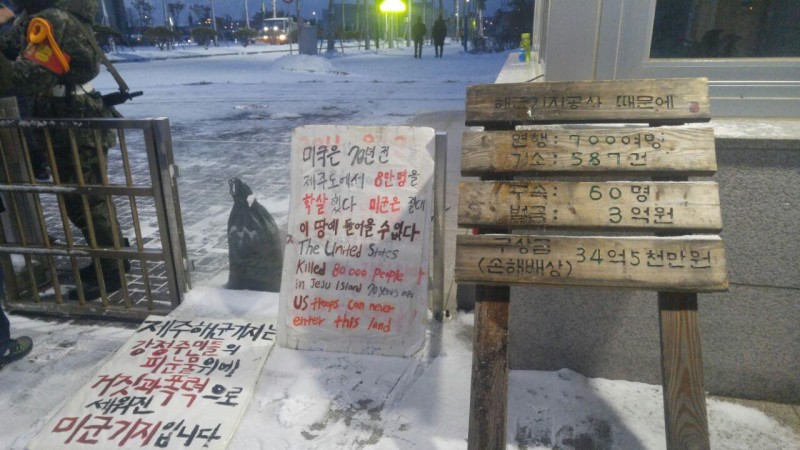 미국은 70년전
제주도에서 8만명을
학살했다 미군은 절대
이 땅에 들어올 수 없다
The United States
Killed 80,000 people
in Jeju Island 70 years ago
US troops can never
enter this land
제주해군기지는
강정주민들의
피눈물위에
거짓과 폭력으로
세워진
미군기지입니다
해군기지공사 때문에
연행: 700여명
기소: 587건
구속: 60명
벌금: 3억원
구상금 34억5천만원
(손해배상)